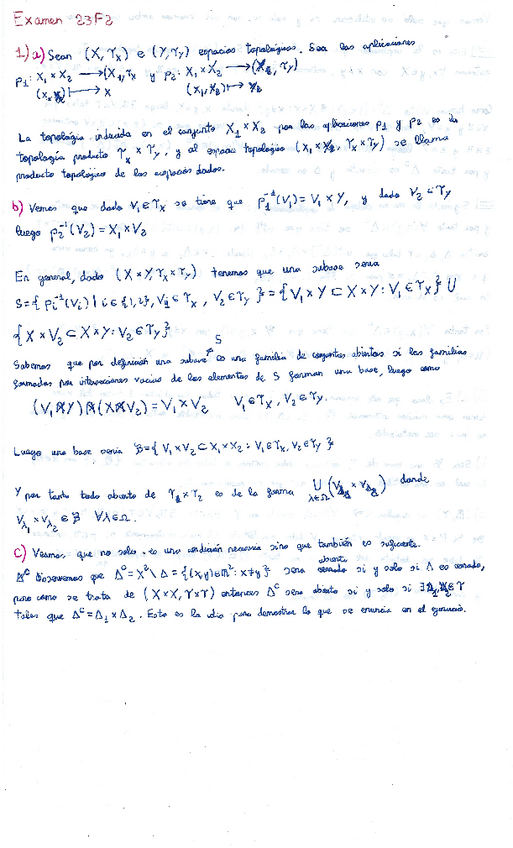 Examen 23F2
1) a) Sean (X, τx) e (Y, τY) espacios topológicos. Sea las aplicaciones
p1: X1 × X2 ⟶ (X1, τx y p2: X1 × X2 ⟶ (X2, τY)
⟼ x
La topología inducida en el conjunto X1 × X2 por las aplicaciones p1 y p2 es la
topología producto τx × τY, y al espacio topológico (X1 × X2, τx × τY) se llama
producto topológico de los espacios dados.
b) Vemos que dado V1 ∈ τx se tiene que p1⁻¹(V1) = V1 × Y, y dado V2 ∈ τY
luego p2⁻¹(V2) = X1 × V2
En general, dado (X × Y, τx × τY) tenemos que una subase sería
S = { pi⁻¹(Vi) | i ∈ {1,2}, V1 ∈ τx, V2 ∈ τY } = { V1 × Y ⊂ X × Y : V1 ∈ τx } ∪
{ X × V2 ⊂ X × Y : V2 ∈ τY }
Sabemos que por definición una subase S es una familia de conjuntos abiertos si las familias
formadas por intersecciones de los elementos de S forman una base, luego como
(V1 × Y) ∩ (X × V2) = V1 × V2 V1 ∈ τx, V2 ∈ τY.
Luego una base sería B = { V1 × V2 ⊂ X1 × X2 : V1 ∈ τx, V2 ∈ τY }
Y por tanto todo abierto de τ1 × τ2 es de la forma ⋃λ∈Ω (Vλ1 × Vλ2) donde
Vλ1 × Vλ2 ∈ B ∀λ ∈ Ω.
c) Veamos que no solo es una condición necesaria sino que también es suficiente.
Observemos que Δᶜ = X² \ Δ = {(x,y) ∈ : x ≠ y} será abierto si y solo si Δ es cerrado,
pero como se trata de (X × X, τ × τ) entonces Δᶜ será abierto si y solo si ∃ Δ1, Δ2 ∈ τ
tales que Δᶜ = Δ1 × Δ2. Esta es la idea para demostrar lo que se enuncia en el ejercicio.